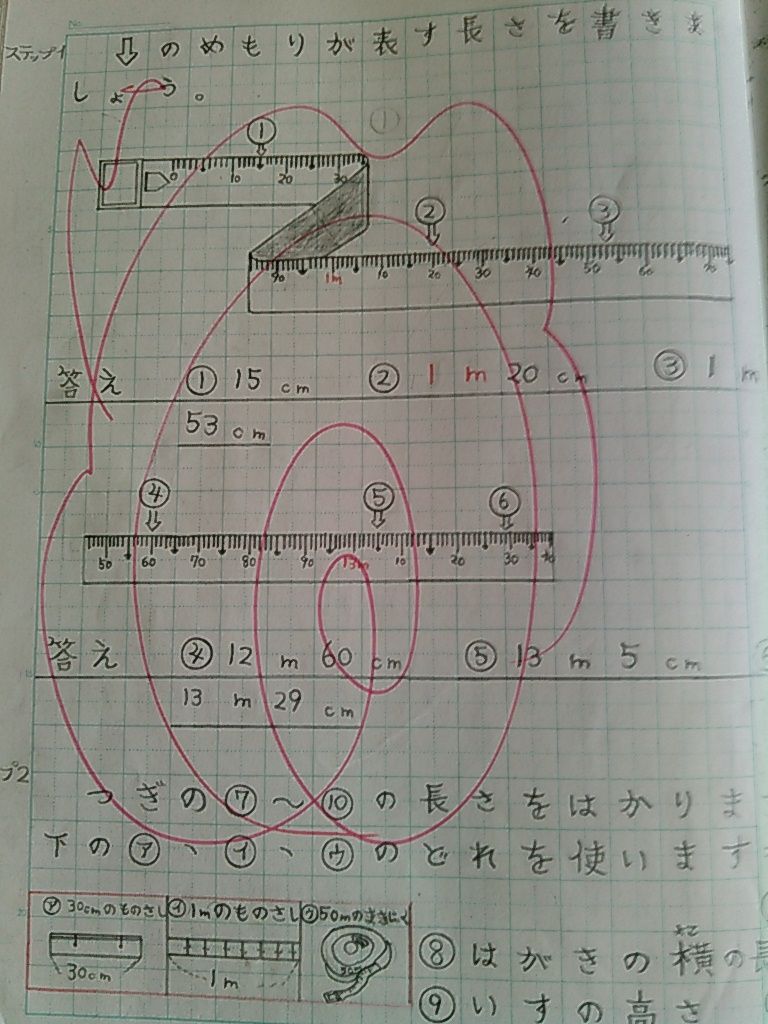 ステップ1
⇩のめもりが表す長さを書きま
しょう。
①
①
0 10 20 30
② ③
90 1m 10 20 30 40 50 60 70
答え ① 15 cm ② 1 m 20 cm ③ 1 m
53 cm
④ ⑤ ⑥
50 60 70 80 90 13m 10 20 30 40
答え ④ 12 m 60 cm ⑤ 13 m 5 cm
13 m 29 cm
プ2
つぎの⑦〜⑩の長さをはかりま
下の㋐、㋑、㋒のどれを使います
㋐ 30cmのものさし ㋑ 1mのものさし ㋒ 50mのまきじゃく
30cm 1m
⑧はがきの横の長
よこ
⑨いすの高さ